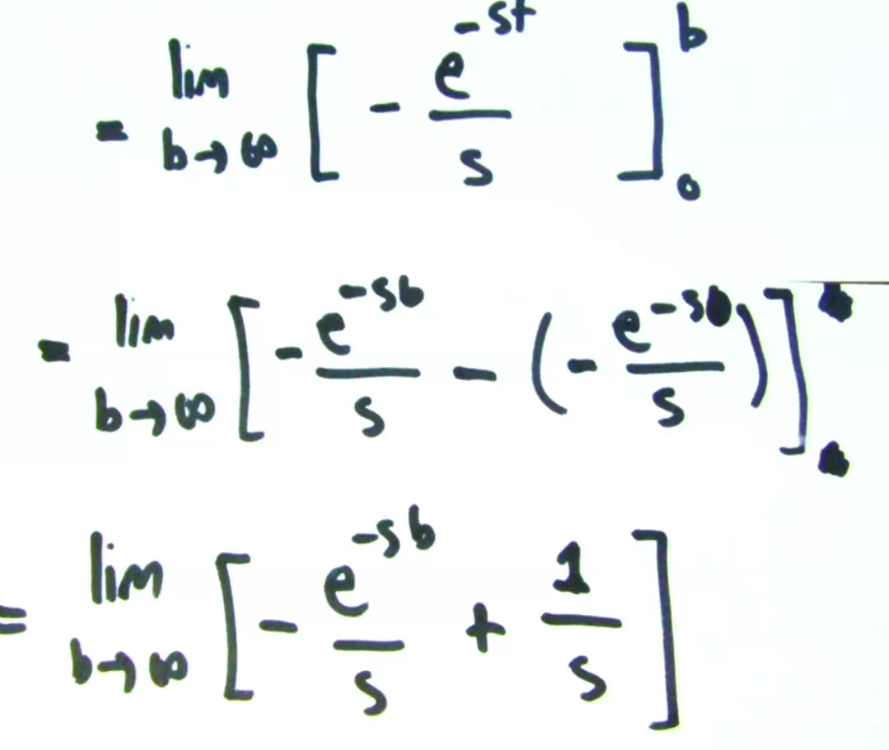 = lim b→∞ [ - e^{-st} / s ]_0^b
= lim b→∞ [ - e^{-sb} / s - ( - e^{-s0} / s ) ]
= lim b→∞ [ - e^{-sb} / s + 1 / s ]